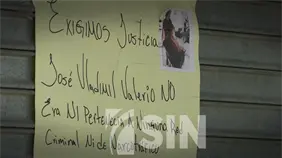 Exigimos Justicia
José Vladimil Valerio NO
Era NI Pertenecia A Ninguna Red
Criminal Ni de Narcotrafico
SIN